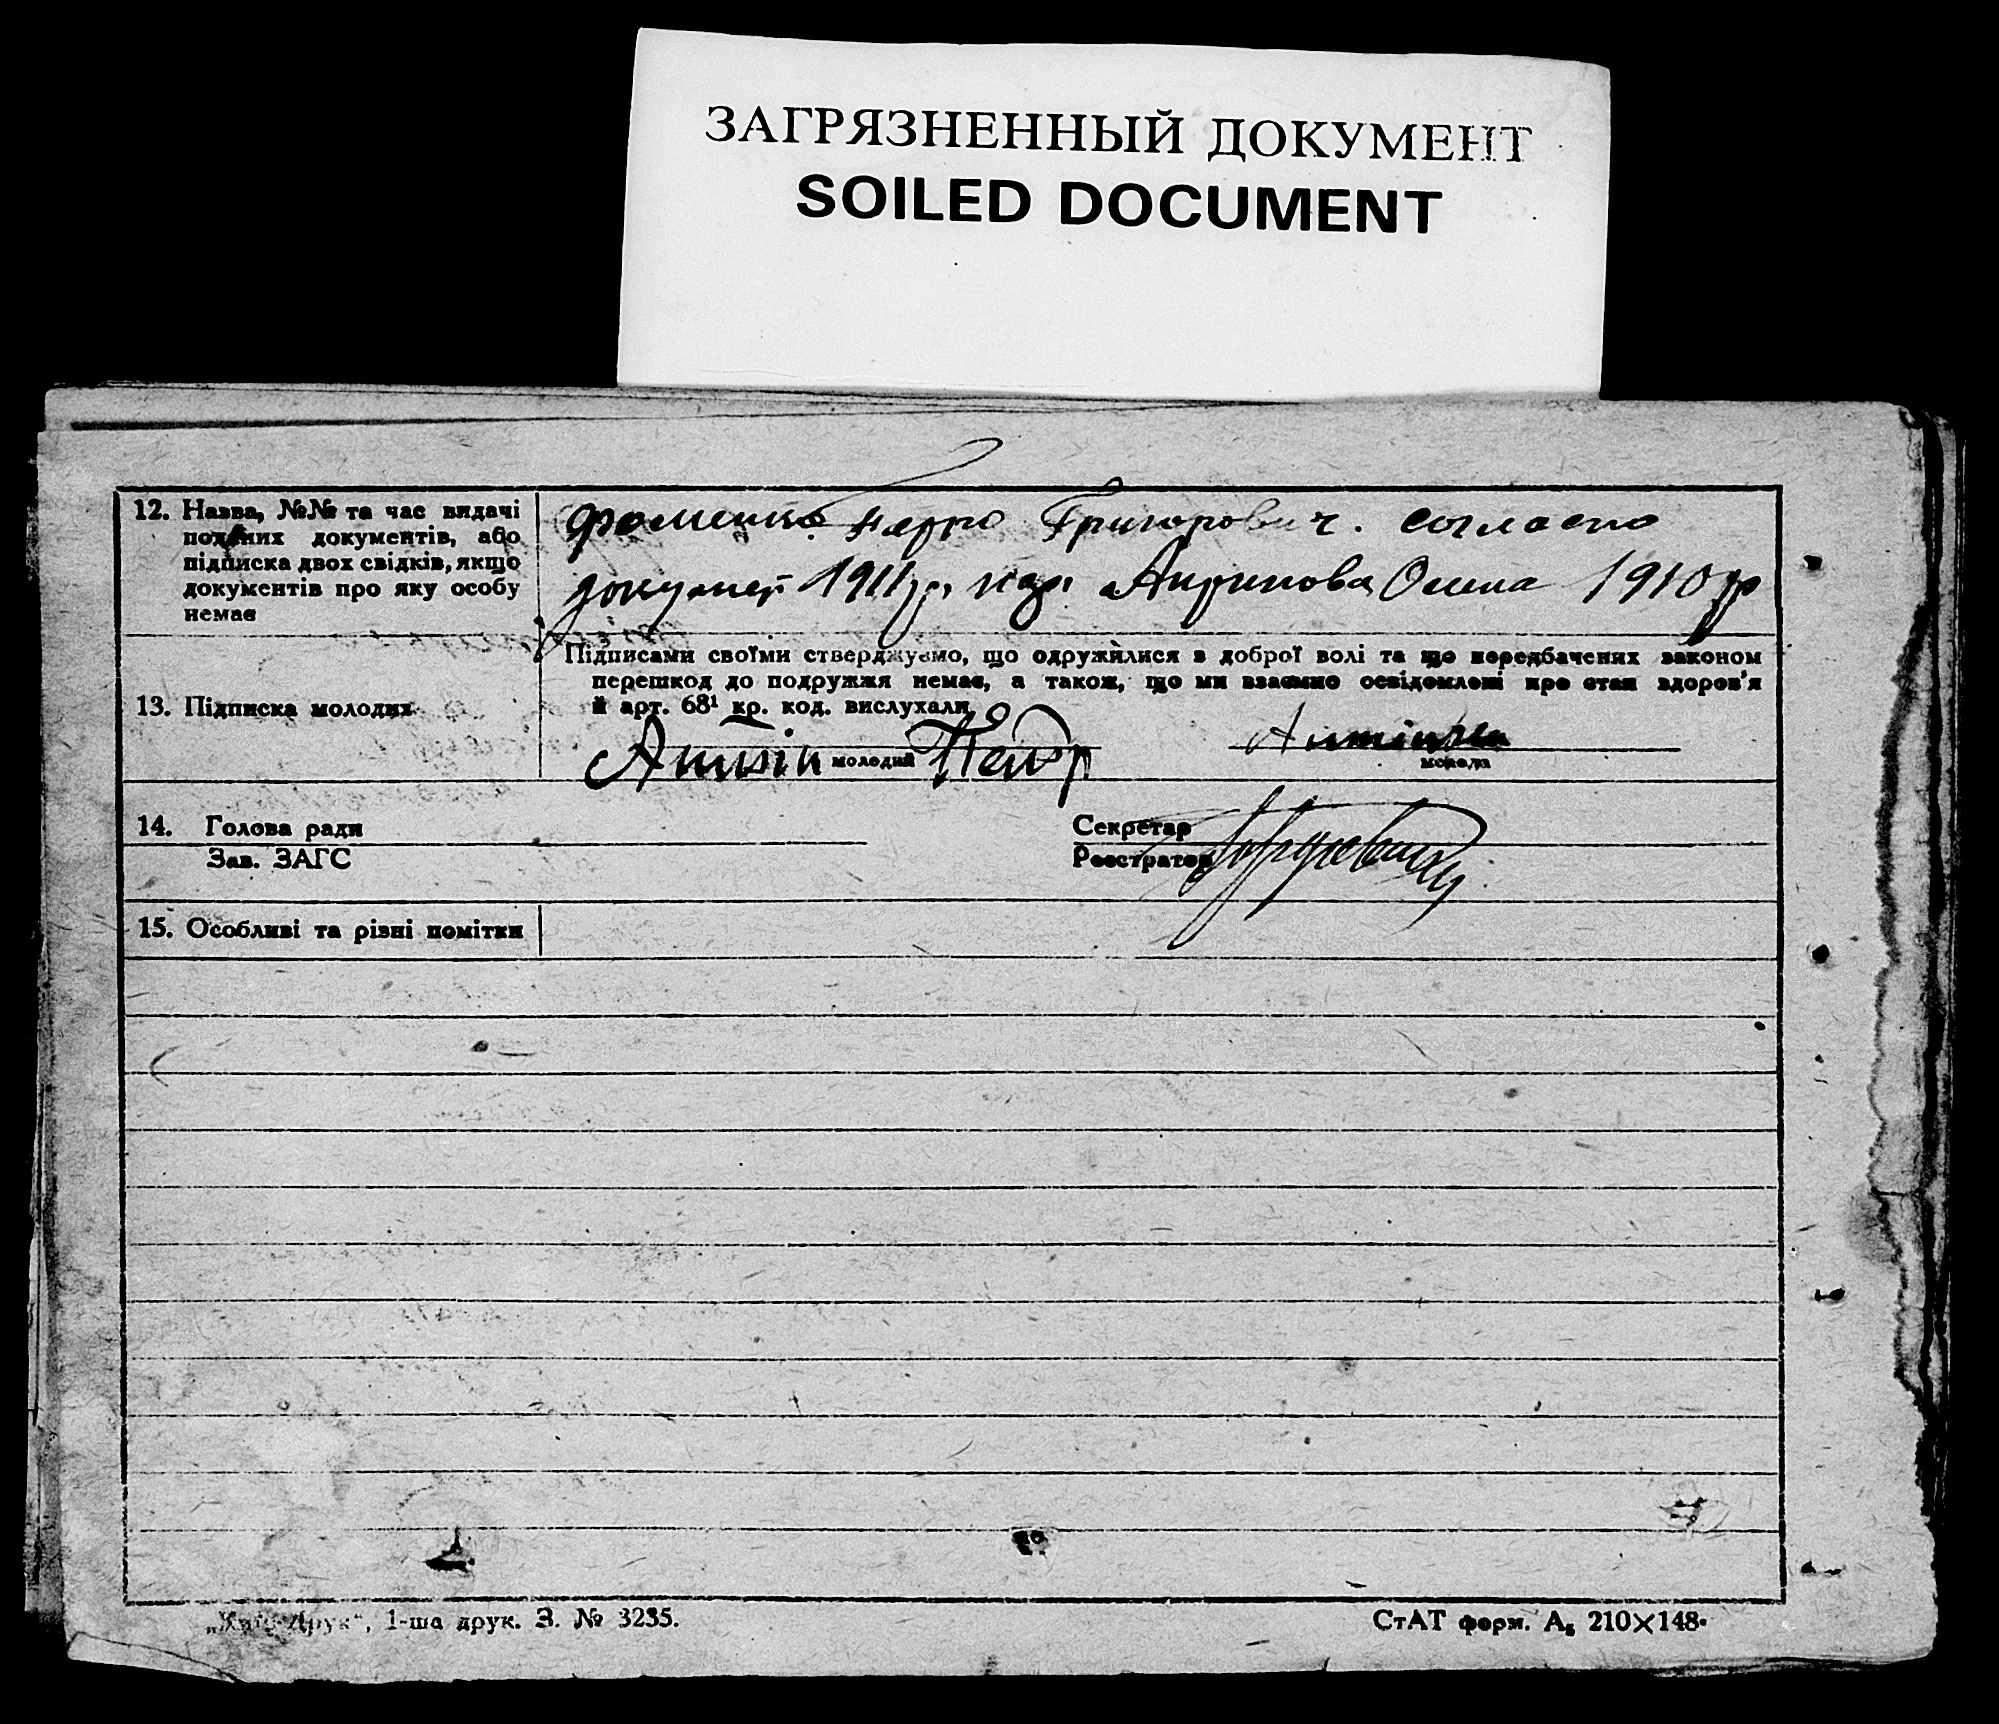 ЗАГРЯЗНЕННЫЙ ДОКУМЕНТ
SOILED DOCUMENT
12. Назва, №№ та час видачі
поданих документів, або
підписка двох свідків, якщо
документів про яку особу
немає
Григорович. согласно
1911 гр. Антипова 1910 гр
13. Підписка молодих
Підписами своїми стверджуємо, що одружилися в доброї волі та що передбачених законом
перешкод до подружжя немає, а також, що ми взаємно освідомлені про стан здоров'я
й арт. 68¹ кр. код. вислухали
Петр
молодий
молода
14. Голова ради
Зав. ЗАГС
Секретар
Реєстратор
15. Особливі та різні помітки
Друк“, 1-ша друк. З. № 3235.
СтАТ форм. А₅ 210×148.